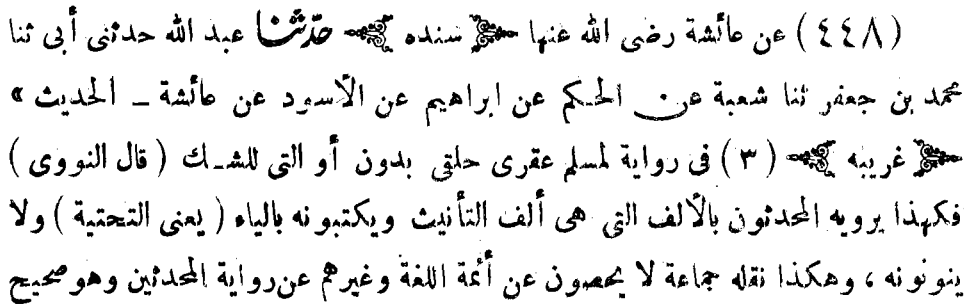 (٤٤٨) عن عائشة رضى الله عنها ﴿سنده﴾ حدّثنا عبد الله حدثنى أبى ثنا
محمد بن جعفر ثنا شعبة عن الحكم عن ابراهيم عن الأسود عن عائشة ــ الحديث »
﴿غريبه﴾ (٣) فى رواية لمسلم عقرى حلقى بدون أو التى للشك (قال النووى)
فكهذا يرويه المحدثون بالألف التى هى ألف التأنيث ويكتبونه بالياء (يعنى التحتية) ولا
ينونونه ، وهكذا نقله جماعة لا يحصون عن أئمة اللغة وغيرهم عن رواية المحدثين وهو صحيح